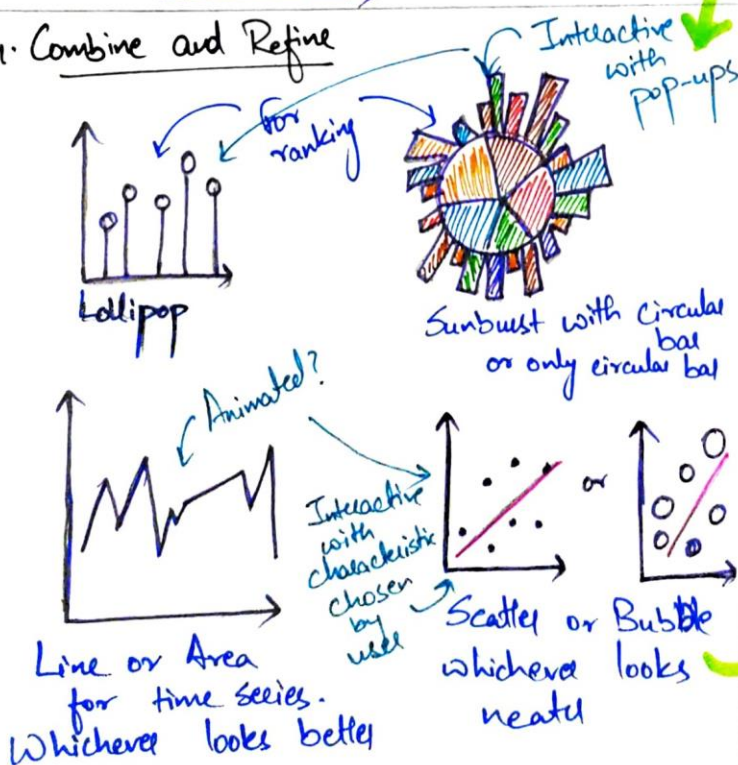 . Combine and Refine
Interactive
with
pop-ups
for
ranking
Lollipop
Sunburst with circular
bar
or only circular bar
Animated?
Interactive
with
characteristic
chosen
by
user
or
Line or Area
for time series.
Whichever looks better
Scatter or Bubble
whichever looks
neater